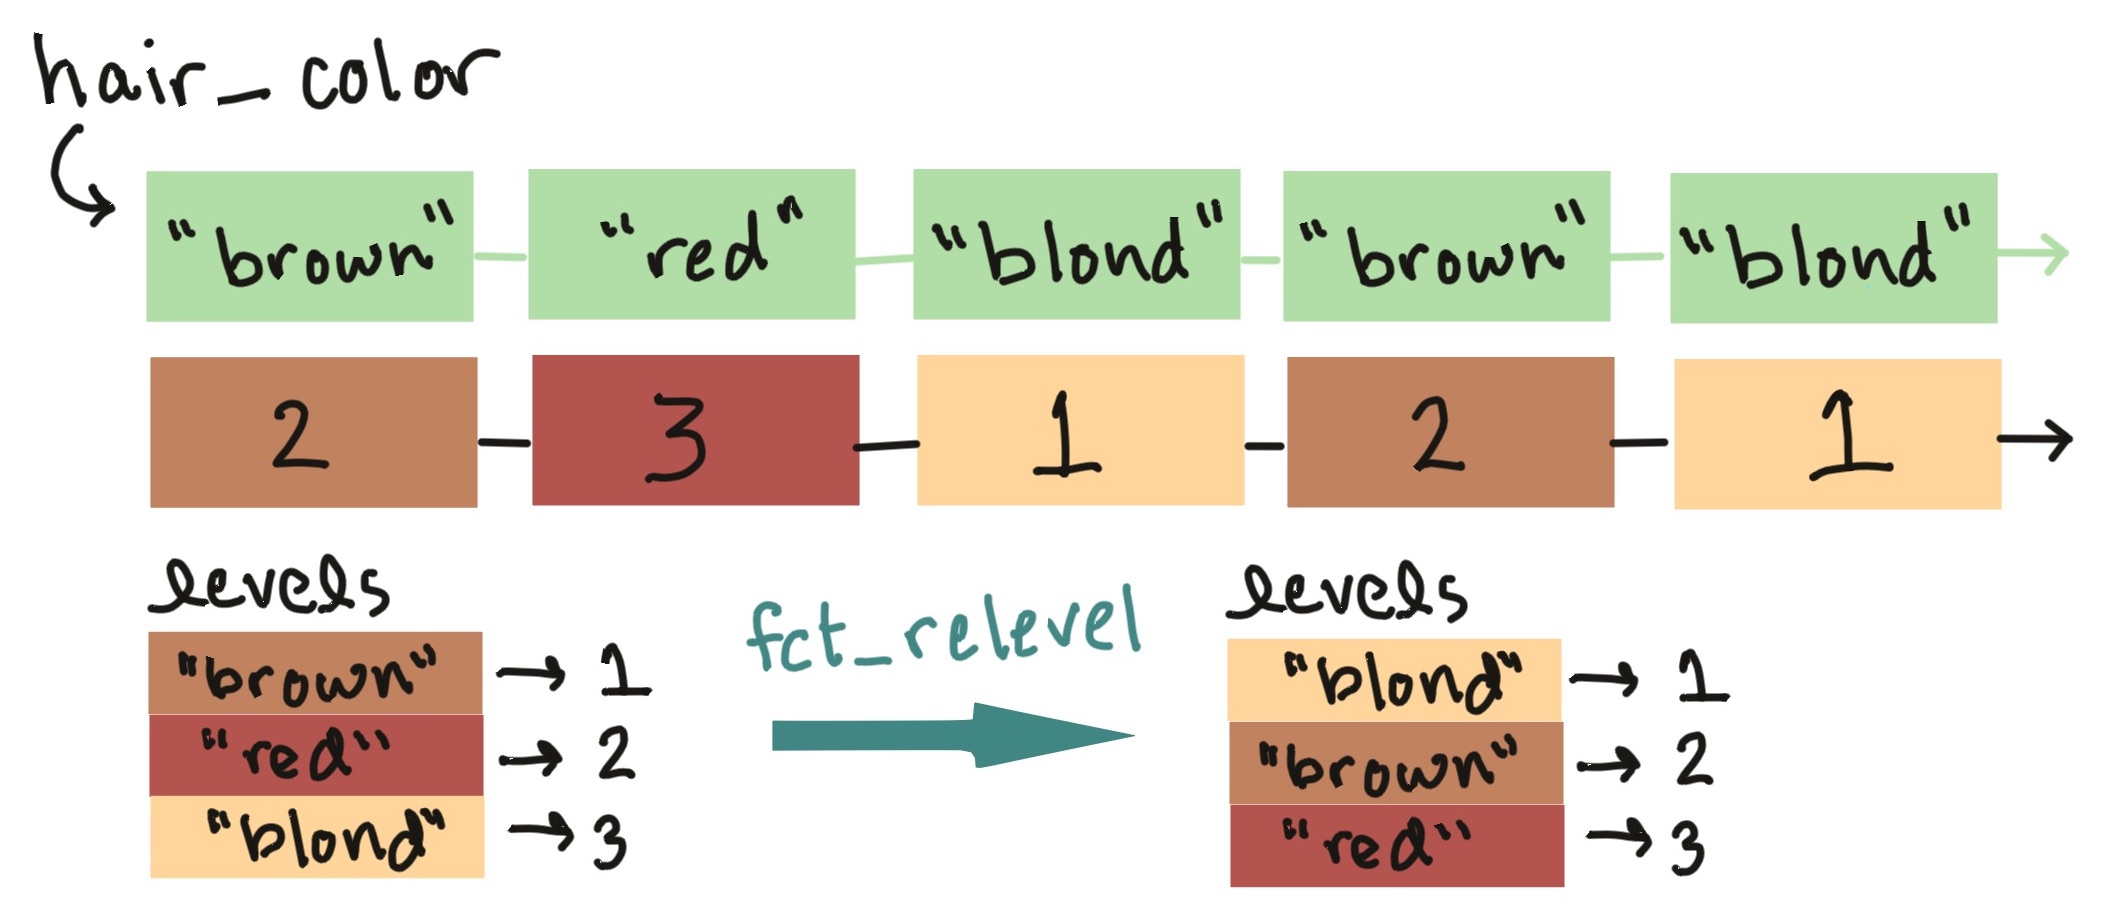 hair_color
"brown" "red" "blond" "brown" "blond"
2 3 1 2 1
levels
"brown" → 1
"red" → 2
"blond" → 3
fct_relevel
levels
"blond" → 1
"brown" → 2
"red" → 3